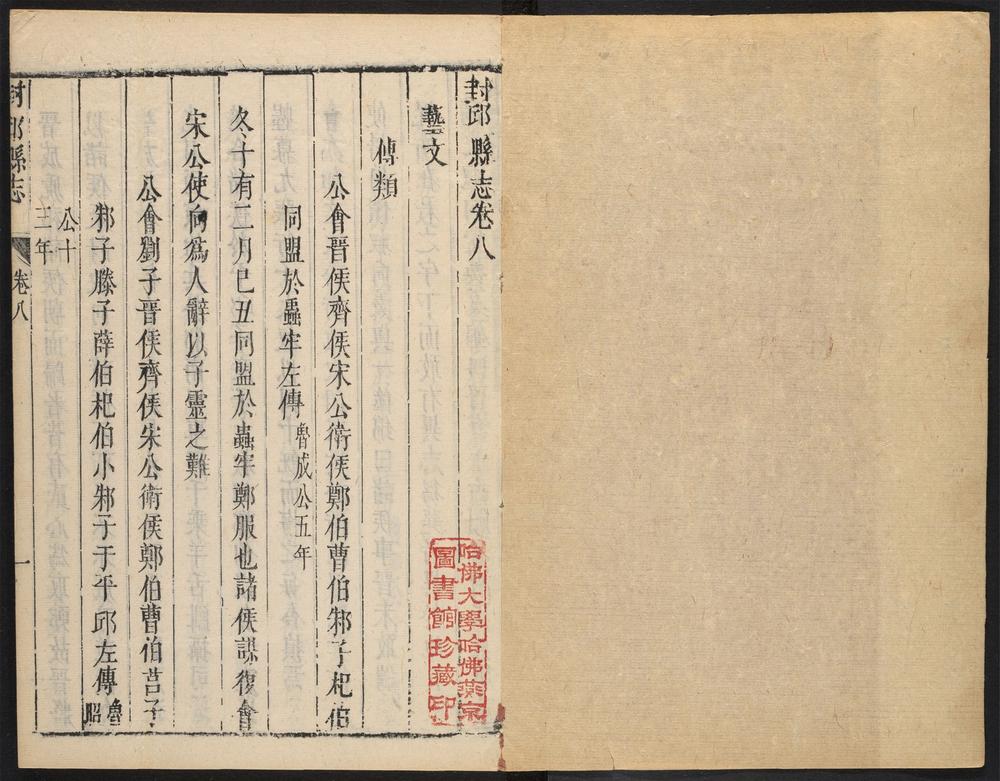 封邱縣志卷八
藝文
傳類
公會晉侯齊侯宋公衛侯鄭伯曹伯邾子杞伯
同盟於蟲牢左傳魯成公五年
冬十有二月己丑同盟於蟲牢鄭服也諸侯謀復會
宋公使向爲人辭以子靈之難
公會劉子晉侯齊侯宋公衛侯鄭伯曹伯莒子
邾子滕子薛伯杞伯小邾子于平邱左傳魯昭
公十三年
封邱縣志 卷八 一
哈佛大學哈佛燕京
圖書館珍藏印